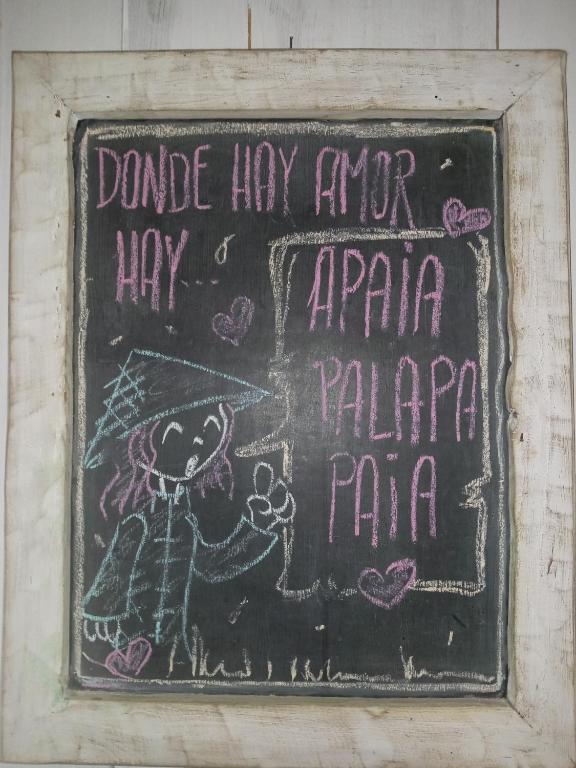 DONDE HAY AMOR
HAY...
APAiA
PALAPA
PAiA